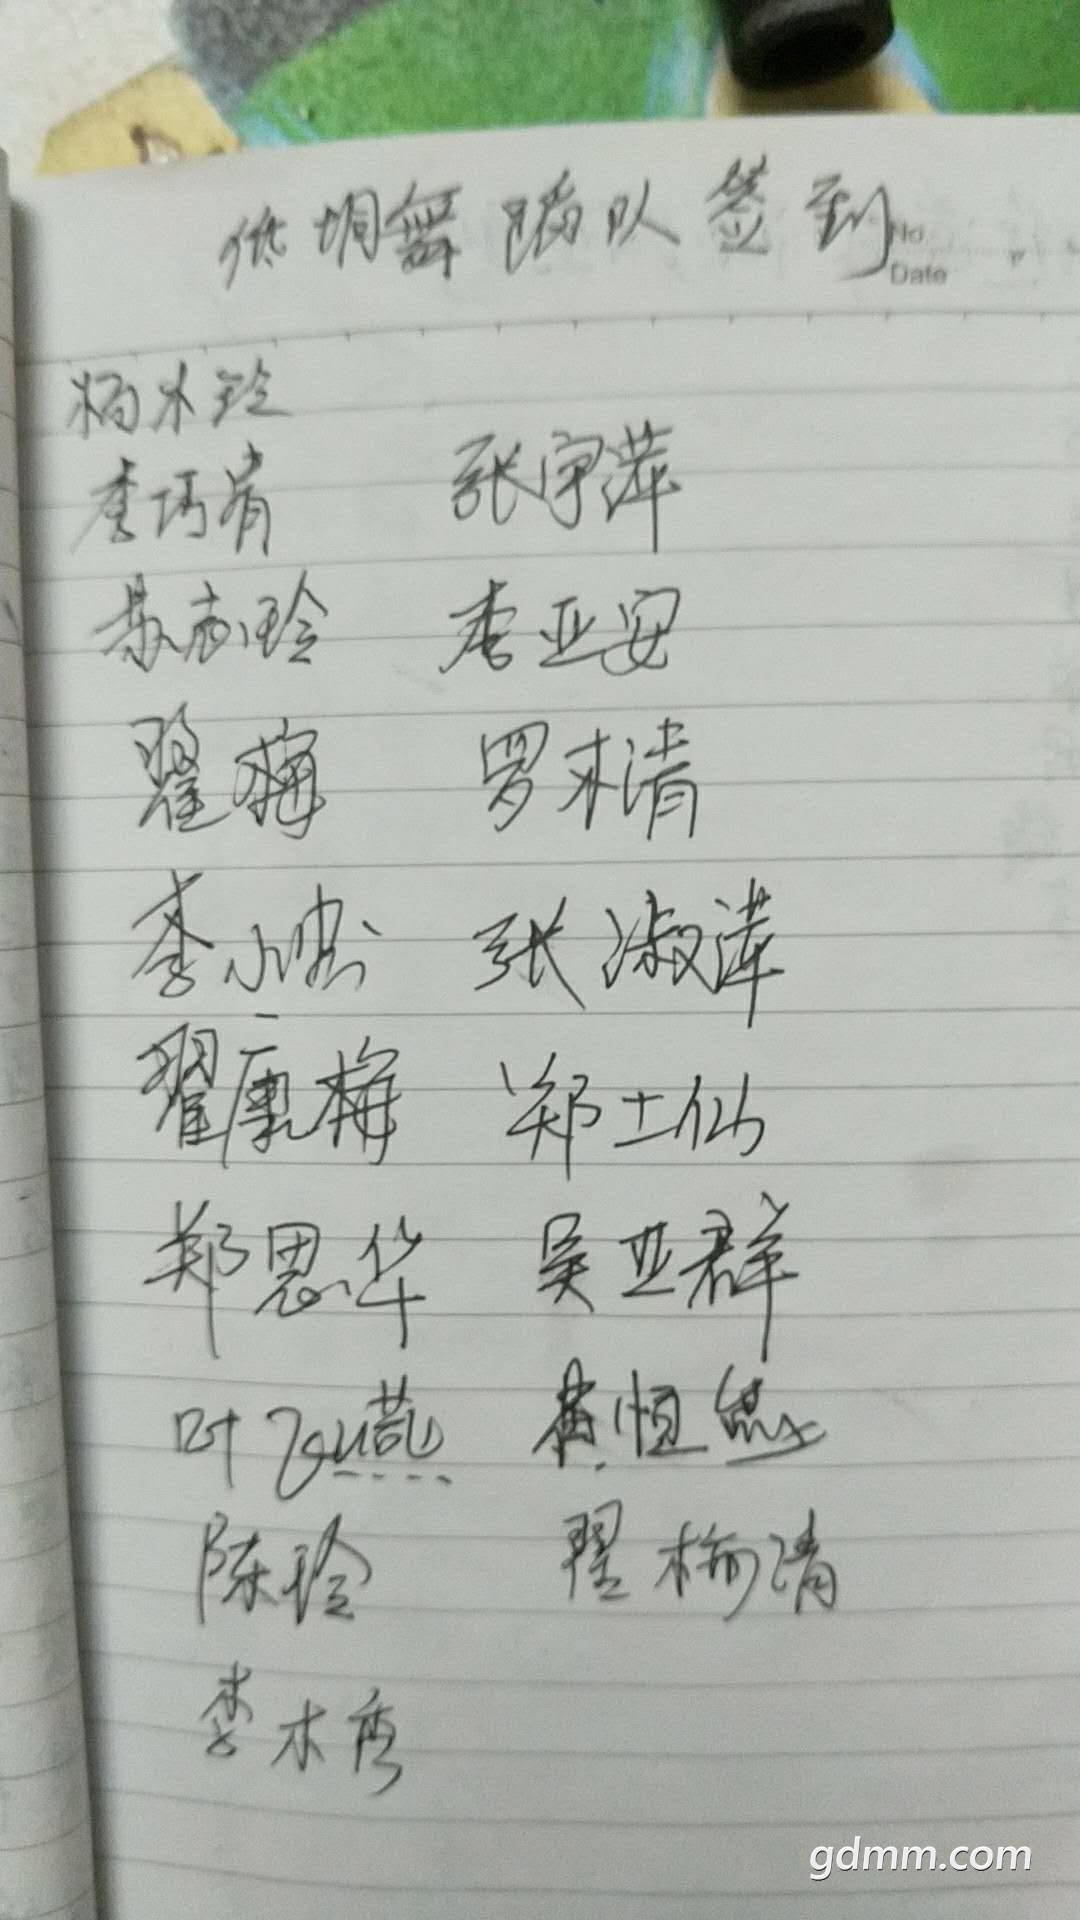 低垌舞蹈队签到
No
Date
杨木玲
李巧肖 张宇萍
苏志玲 李亚安
翟梅 罗木清
李小 张淑萍
翟康梅 郑士仙
郑恩华 吴亚群
叶飞燕 黄恒
陈玲 翟梅清
李木秀
gdmm.com